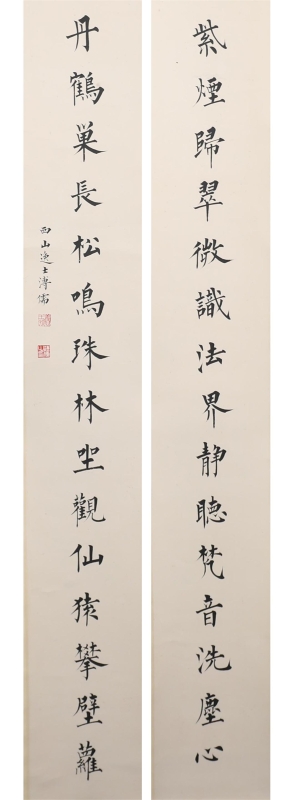 紫煙歸翠微識法界静聽梵音洗塵心
丹鶴巢長松鳴珠林坐觀仙猿攀壁蘿
西山逸士溥儒